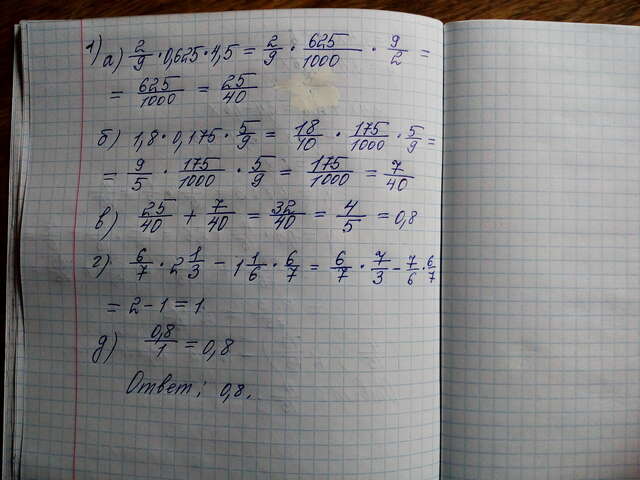 1) а) 2/9 · 0,625 · 4,5 = 2/9 · 625/1000 · 9/2 =
= 625/1000 = 25/40
б) 1,8 · 0,175 · 5/9 = 18/10 · 175/1000 · 5/9 =
= 9/5 · 175/1000 · 5/9 = 175/1000 = 7/40
в) 25/40 + 7/40 = 32/40 = 4/5 = 0,8
г) 6/7 · 2 1/3 - 1 1/6 · 6/7 = 6/7 · 7/3 - 7/6 · 6/7
= 2 - 1 = 1
д) 0,8/1 = 0,8
Ответ: 0,8.